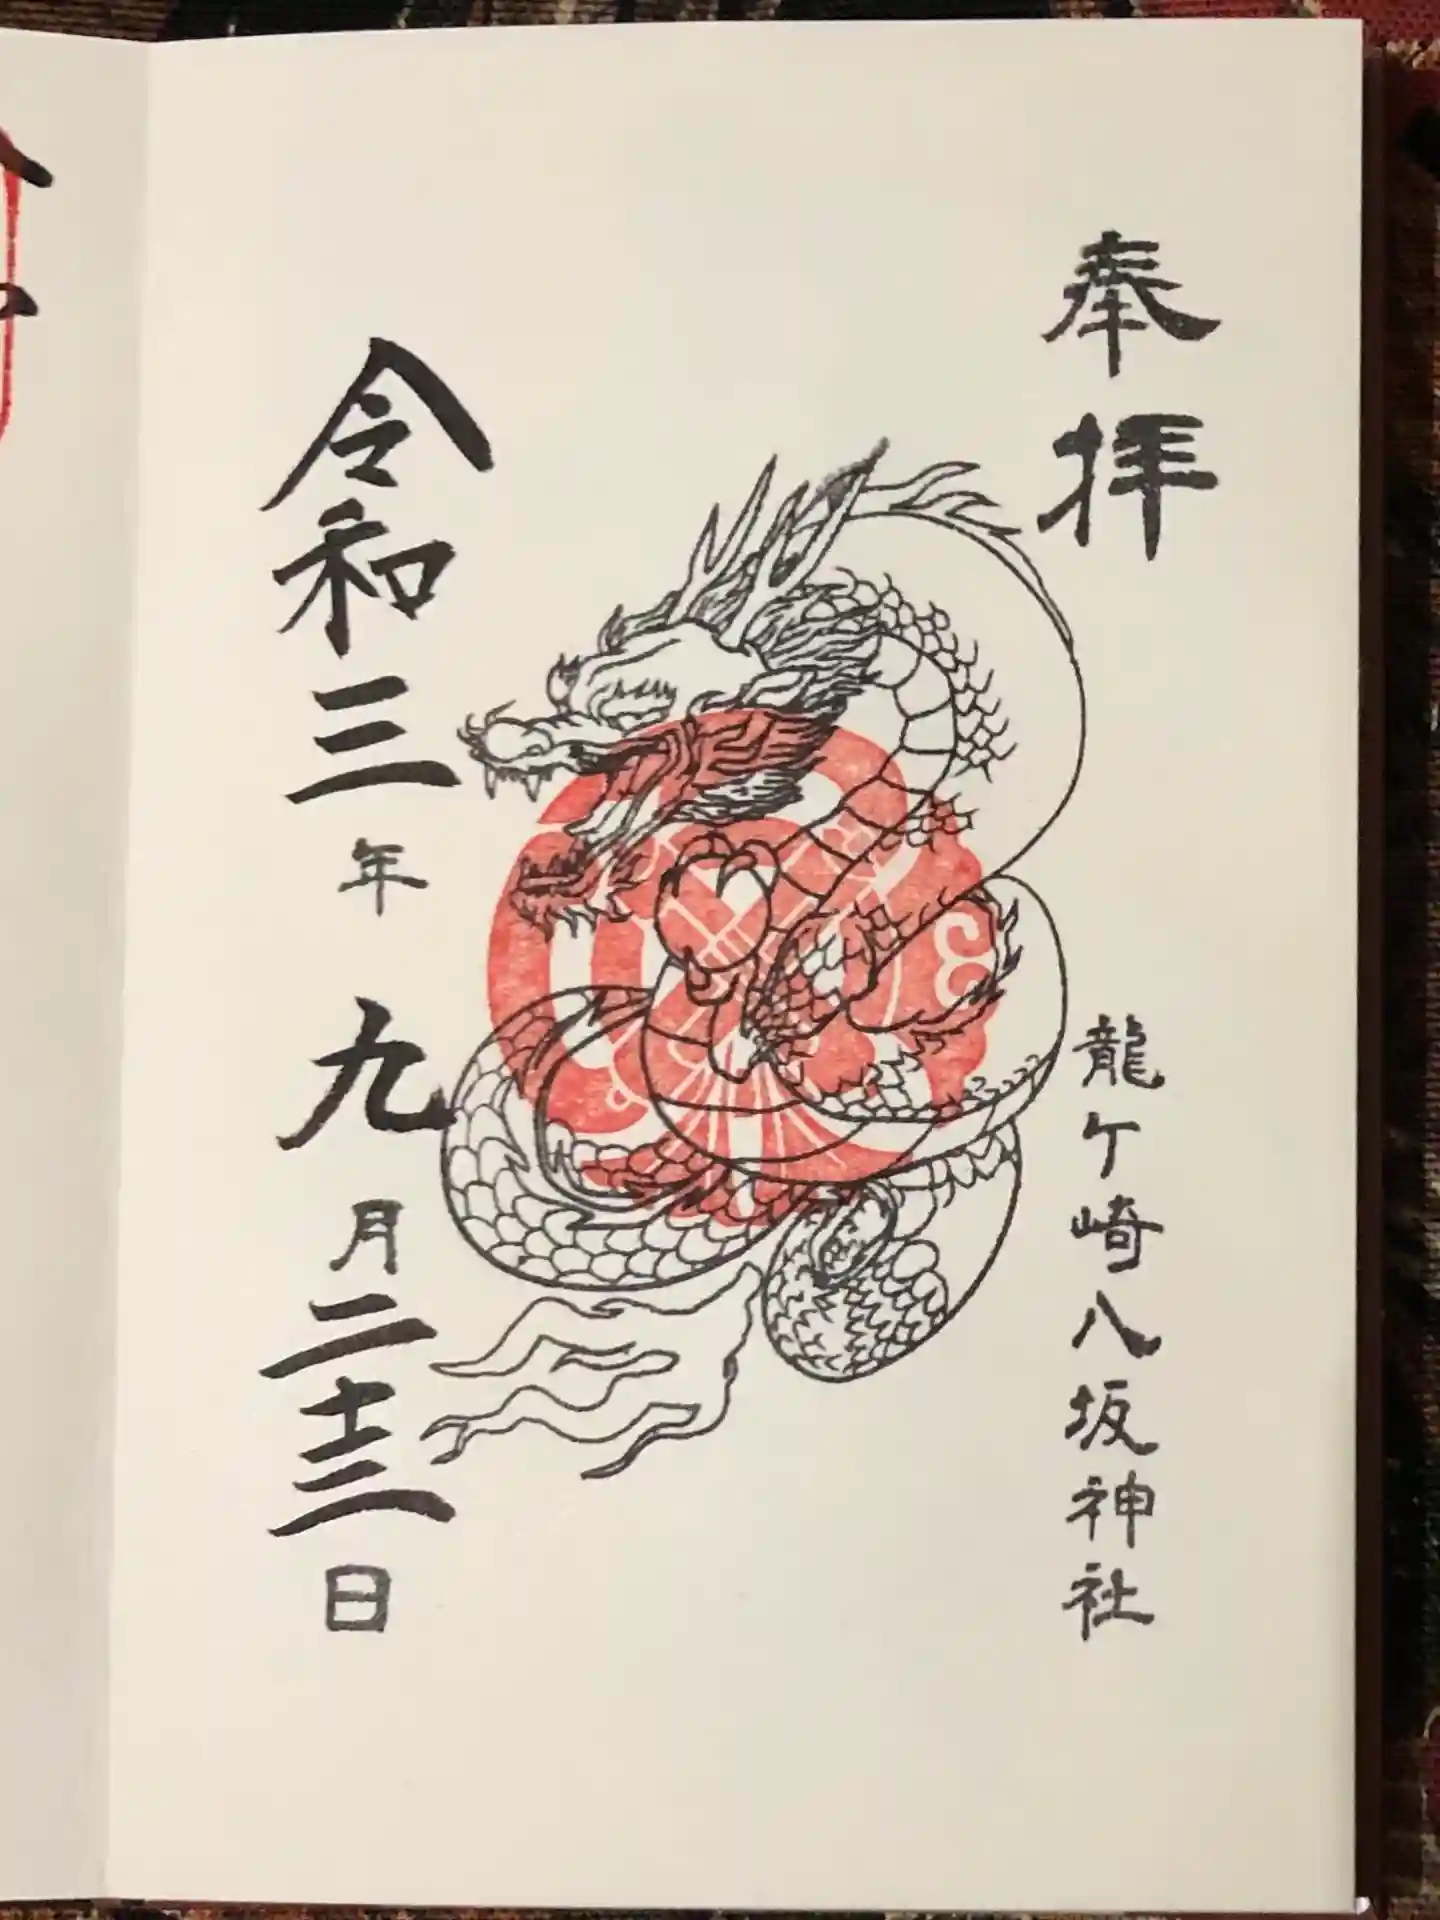 奉拝
龍ケ崎八坂神社
令和三年九月二十三日